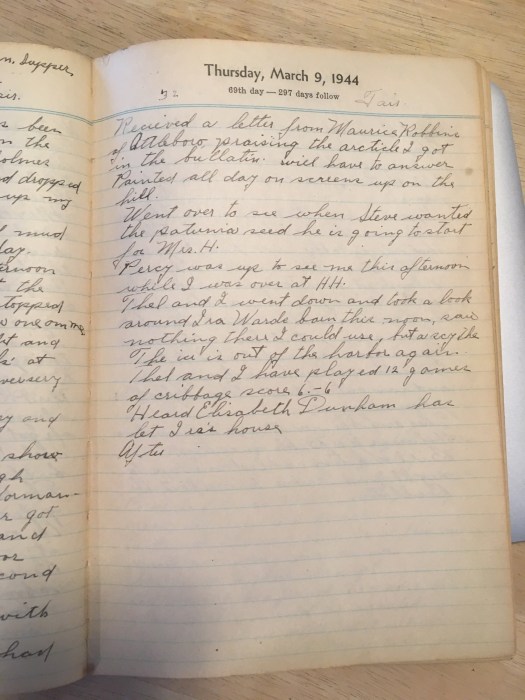 n. Supper,
sis.
s been
n the
olmes
d dropped
ups my
l mud
day.
ernoon
t the
topped
s one om me
it and
k at
ry and
show
gh
forman-
r got
and
or
cond
with
had
Thursday, March 9, 1944
69th day — 297 days follow
32 Fair
Recived a letter from Maurice Robbins
of Attleboro, praising the arcticle I got
in the bullatin. will have to answer
Painted all day on screens up on the
hill.
Went over to see when Steve wanted
the patunia seed he is going to start
for Mrs. H.
Percy was up to see me this afternoon
while I was over at HH.
Thel and I went down and took a look
around Ira Wards barn this noon, saw
nothing there I could use, but a scythe
The ice is out of the harbor again.
Thel and I have played 12 games
of cribbage score 6.-6
Heard Elisabeth Dunham has
let house
After